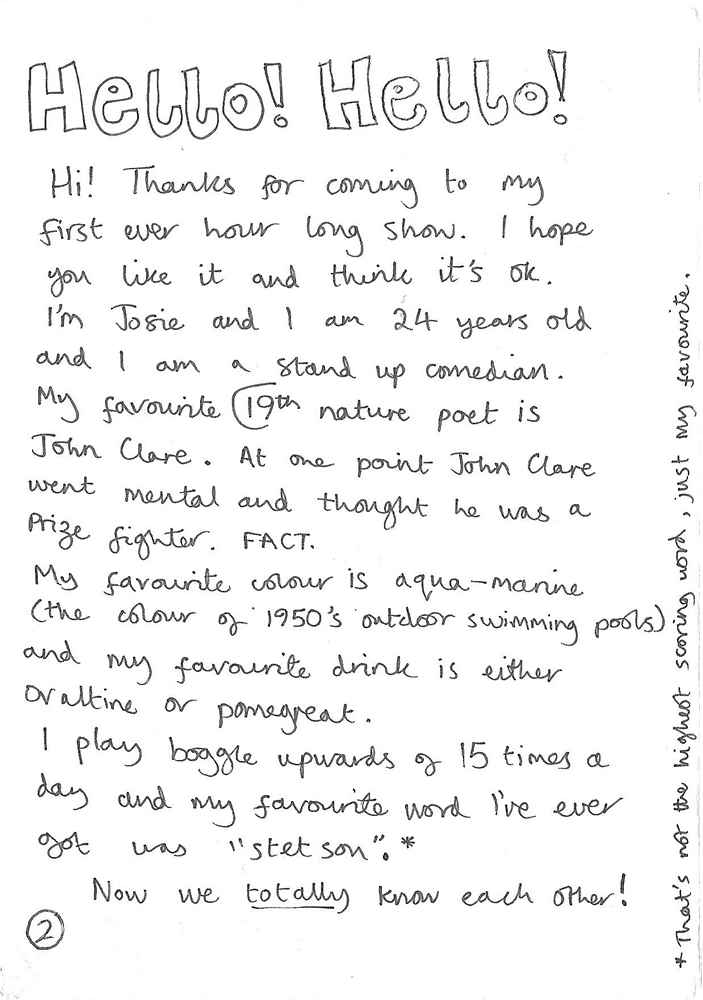 Hello! Hello!
Hi! Thanks for coming to my
first ever hour long show. I hope
you like it and think it's ok.
I'm Josie and I am 24 years old
and I am a stand up comedian.
My favourite 19th nature poet is
John Clare. At one point John Clare
went mental and thought he was a
Prize fighter. FACT.
My favourite colour is aqua-marine
(the colour of 1950's outdoor swimming pools)
and my favourite drink is either
Ovaltine or pomegreat.
I play boggle upwards of 15 times a
day and my favourite word I've ever
got was "stetson".*
Now we totally know each other!
2
*That's not the highest scoring word, just my favourite.